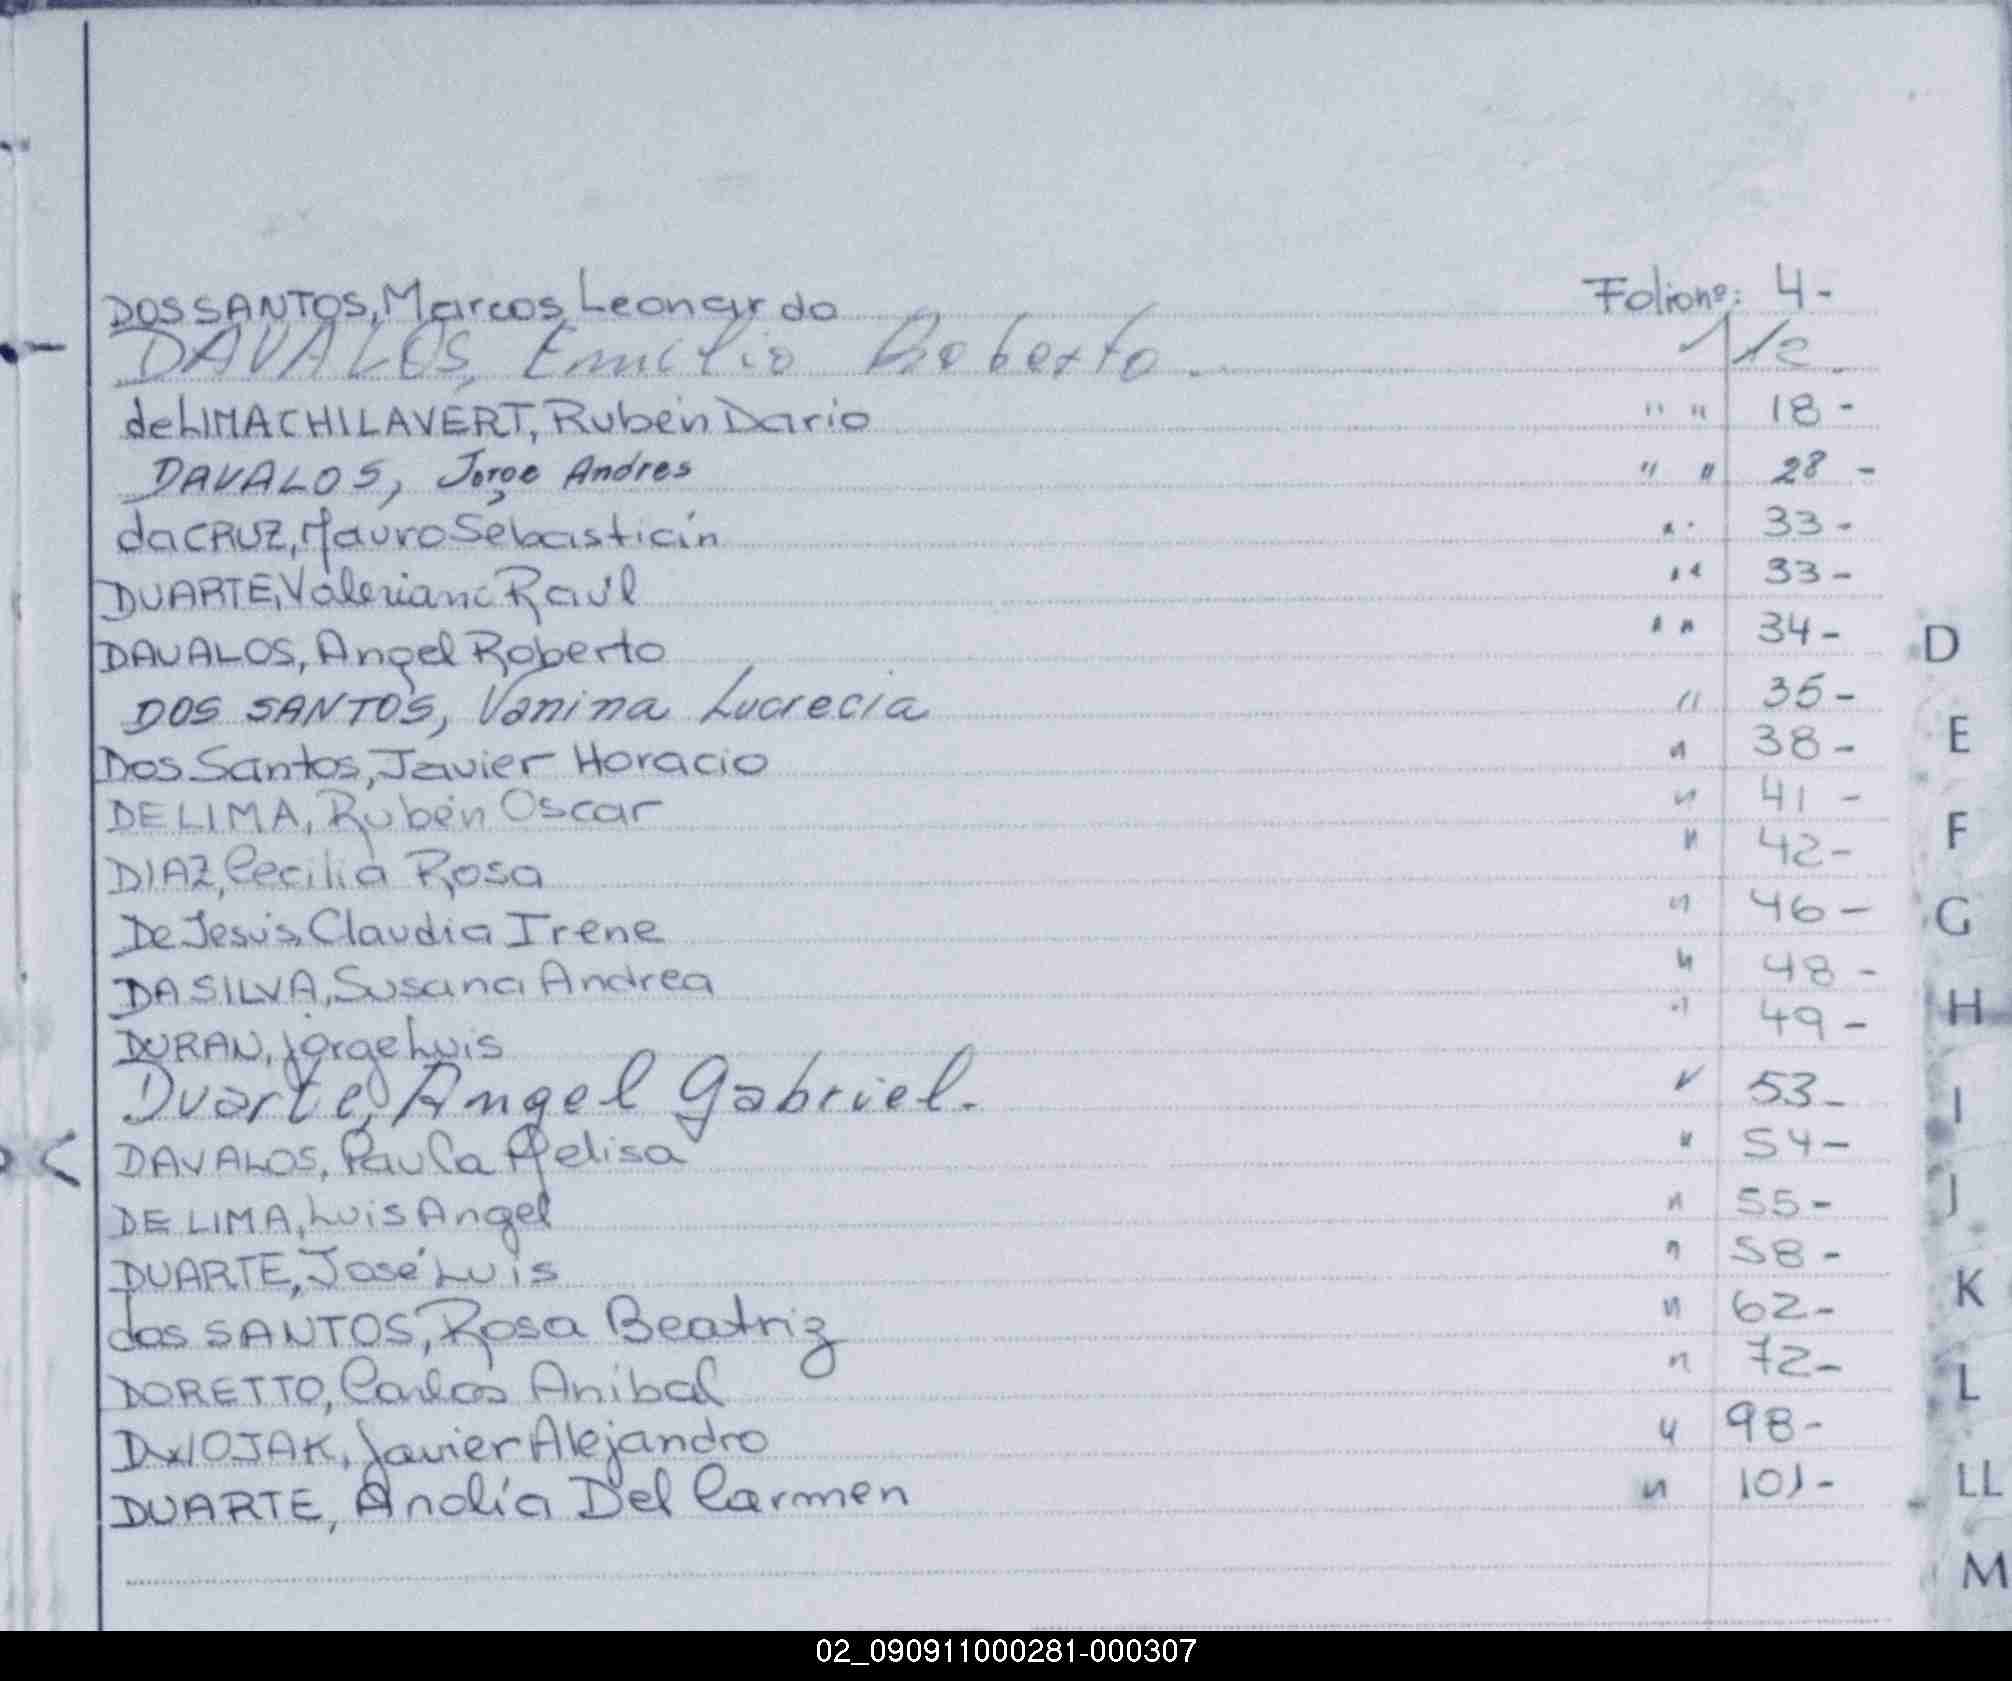 DOS SANTOS, Marcos Leonardo Folio nº: 4-
DAVALOS, Emilio Roberto. 12
de LIMA CHILAVERT, Rubén Dario " " 18-
DAVALOS, Jorge Andres " " 28-
da CRUZ, Mauro Sebastián " " 33-
DUARTE, Valeriano Raúl " " 33-
DAVALOS, Angel Roberto " " 34-
DOS SANTOS, Vanina Lucrecia " 35-
Dos Santos, Javier Horacio " 38-
DE LIMA, Rubén Oscar " 41-
DIAZ, Cecilia Rosa " 42-
De Jesús, Claudia Irene " 46-
DA SILVA, Susana Andrea " 48-
DURAN, Jorge Luis " 49-
Duarte, Angel Gabriel. " 53-
DAVALOS, Paula Melisa " 54-
DE LIMA, Luis Angel " 55-
DUARTE, José Luis " 58-
dos SANTOS, Rosa Beatriz " 62-
DORETTO, Carlos Anibal " 72-
DWOJAK, Javier Alejandro " 98-
DUARTE, Analía Del Carmen " 101-
D
E
F
G
H
I
J
K
L
LL
M
02_090911000281-000307